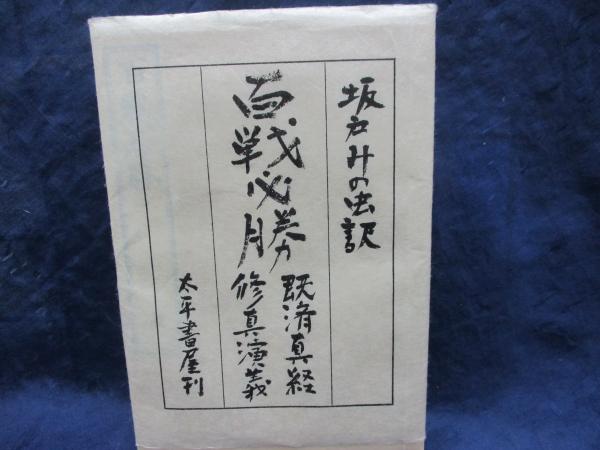 坂戸みの虫訳
百戦必勝
既済真経
修真演義
太平書屋刊